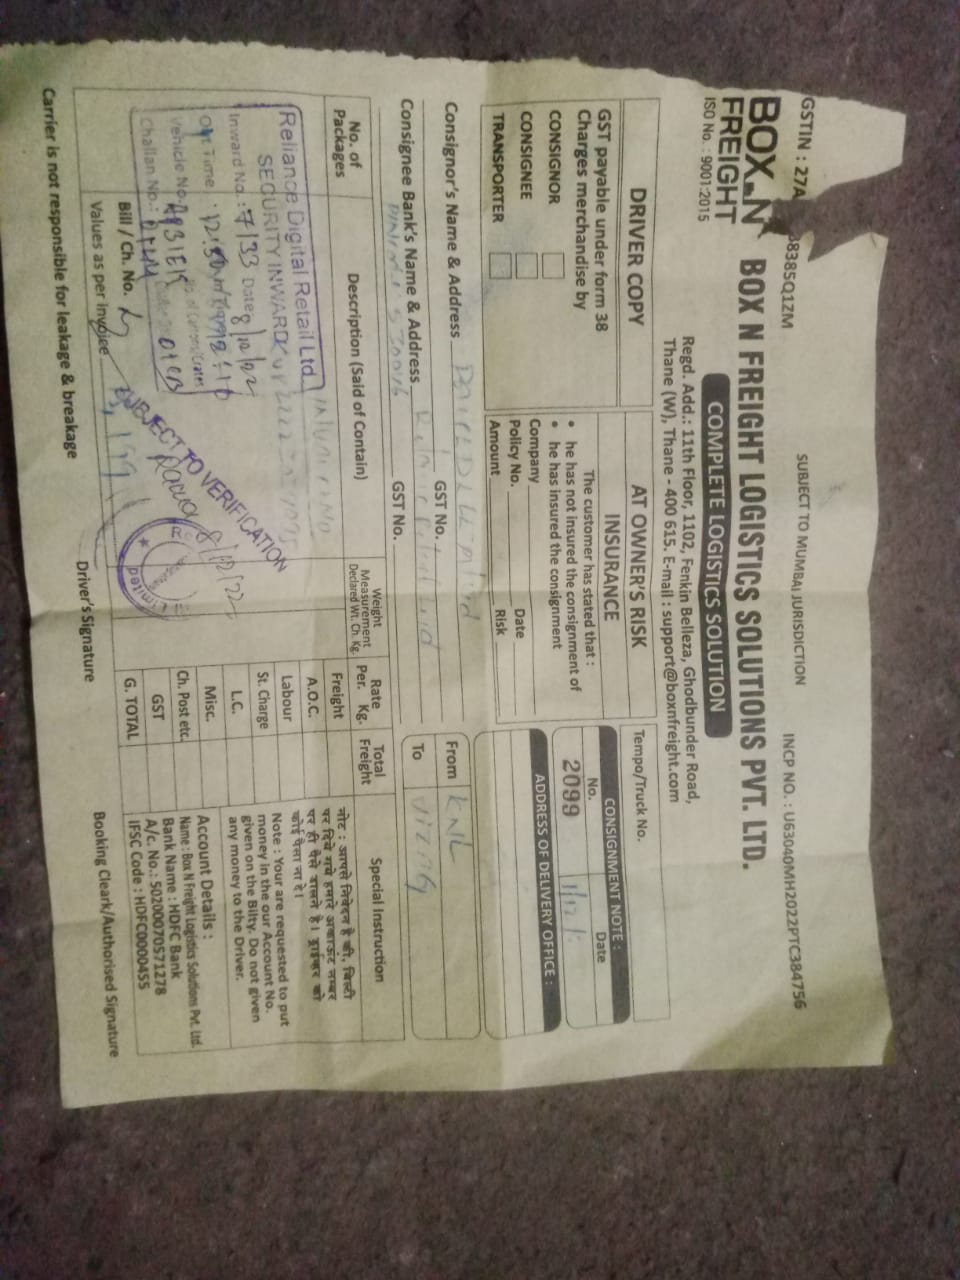 GSTIN : 27A 38385Q1ZM
SUBJECT TO MUMBAI JURISDICTION
INCP NO. : U63040MH2022PTC384756
BOX N
FREIGHT
ISO No. : 9001:2015
BOX N FREIGHT LOGISTICS SOLUTIONS PVT. LTD.
COMPLETE LOGISTICS SOLUTION
Regd. Add.: 11th Floor, 1102, Fenkin Belleza, Ghodbunder Road,
Thane (W), Thane - 400 615. E-mail : support@boxnfreight.com
DRIVER COPY
GST payable under form 38
Charges merchandise by
CONSIGNOR
CONSIGNEE
TRANSPORTER
AT OWNER'S RISK
INSURANCE
The customer has stated that :
• he has not insured the consignment of
• he has insured the consignment
Company
Policy No. Date
Amount Risk
Tempo/Truck No.
CONSIGNMENT NOTE :
No. Date
2099 1/12/
ADDRESS OF DELIVERY OFFICE :
Consignor's Name & Address
GST No.
Consignee Bank's Name & Address
530046 GST No.
From KNL
To VIZAG
No. of
Packages
Description (Said of Contain)
Weight
Measurement
Declared Wt. Ch. Kg.
Rate
Per. Kg.
Total
Freight
Special Instruction
Freight
A.O.C.
Labour
St. Charge
L.C.
Misc.
Ch. Post etc.
GST
G. TOTAL
नोट : आपसे निवेदन है की, बिल्टी
पर दिये गये हमारे अकाऊंट नम्बर
पर ही पैसे डालने है। ड्राईव्हर को
कोई पैसा ना दे।
Note : Your are requested to put
money in the our Account No.
given on the Bilty. Do not given
any money to the Driver.
Account Details :
Name : Box N Freight Logistics Solutions Pvt. Ltd.
Bank Name : HDFC Bank
A/c. No.: 50200070571278
IFSC Code : HDFC0000455
Reliance Digital Retail Ltd
SECURITY INWARD
Inward No.: 7133 Date 8/12/22
Out Time : 12:50
Vehicle No. No. of Cartons/Crates
Challan No.:
SUBJECT TO VERIFICATION
8/12/22
Limited
Bill / Ch. No.
Values as per Invoice
Driver's Signature
Booking Cleark/Authorised Signature
Carrier is not responsible for leakage & breakage